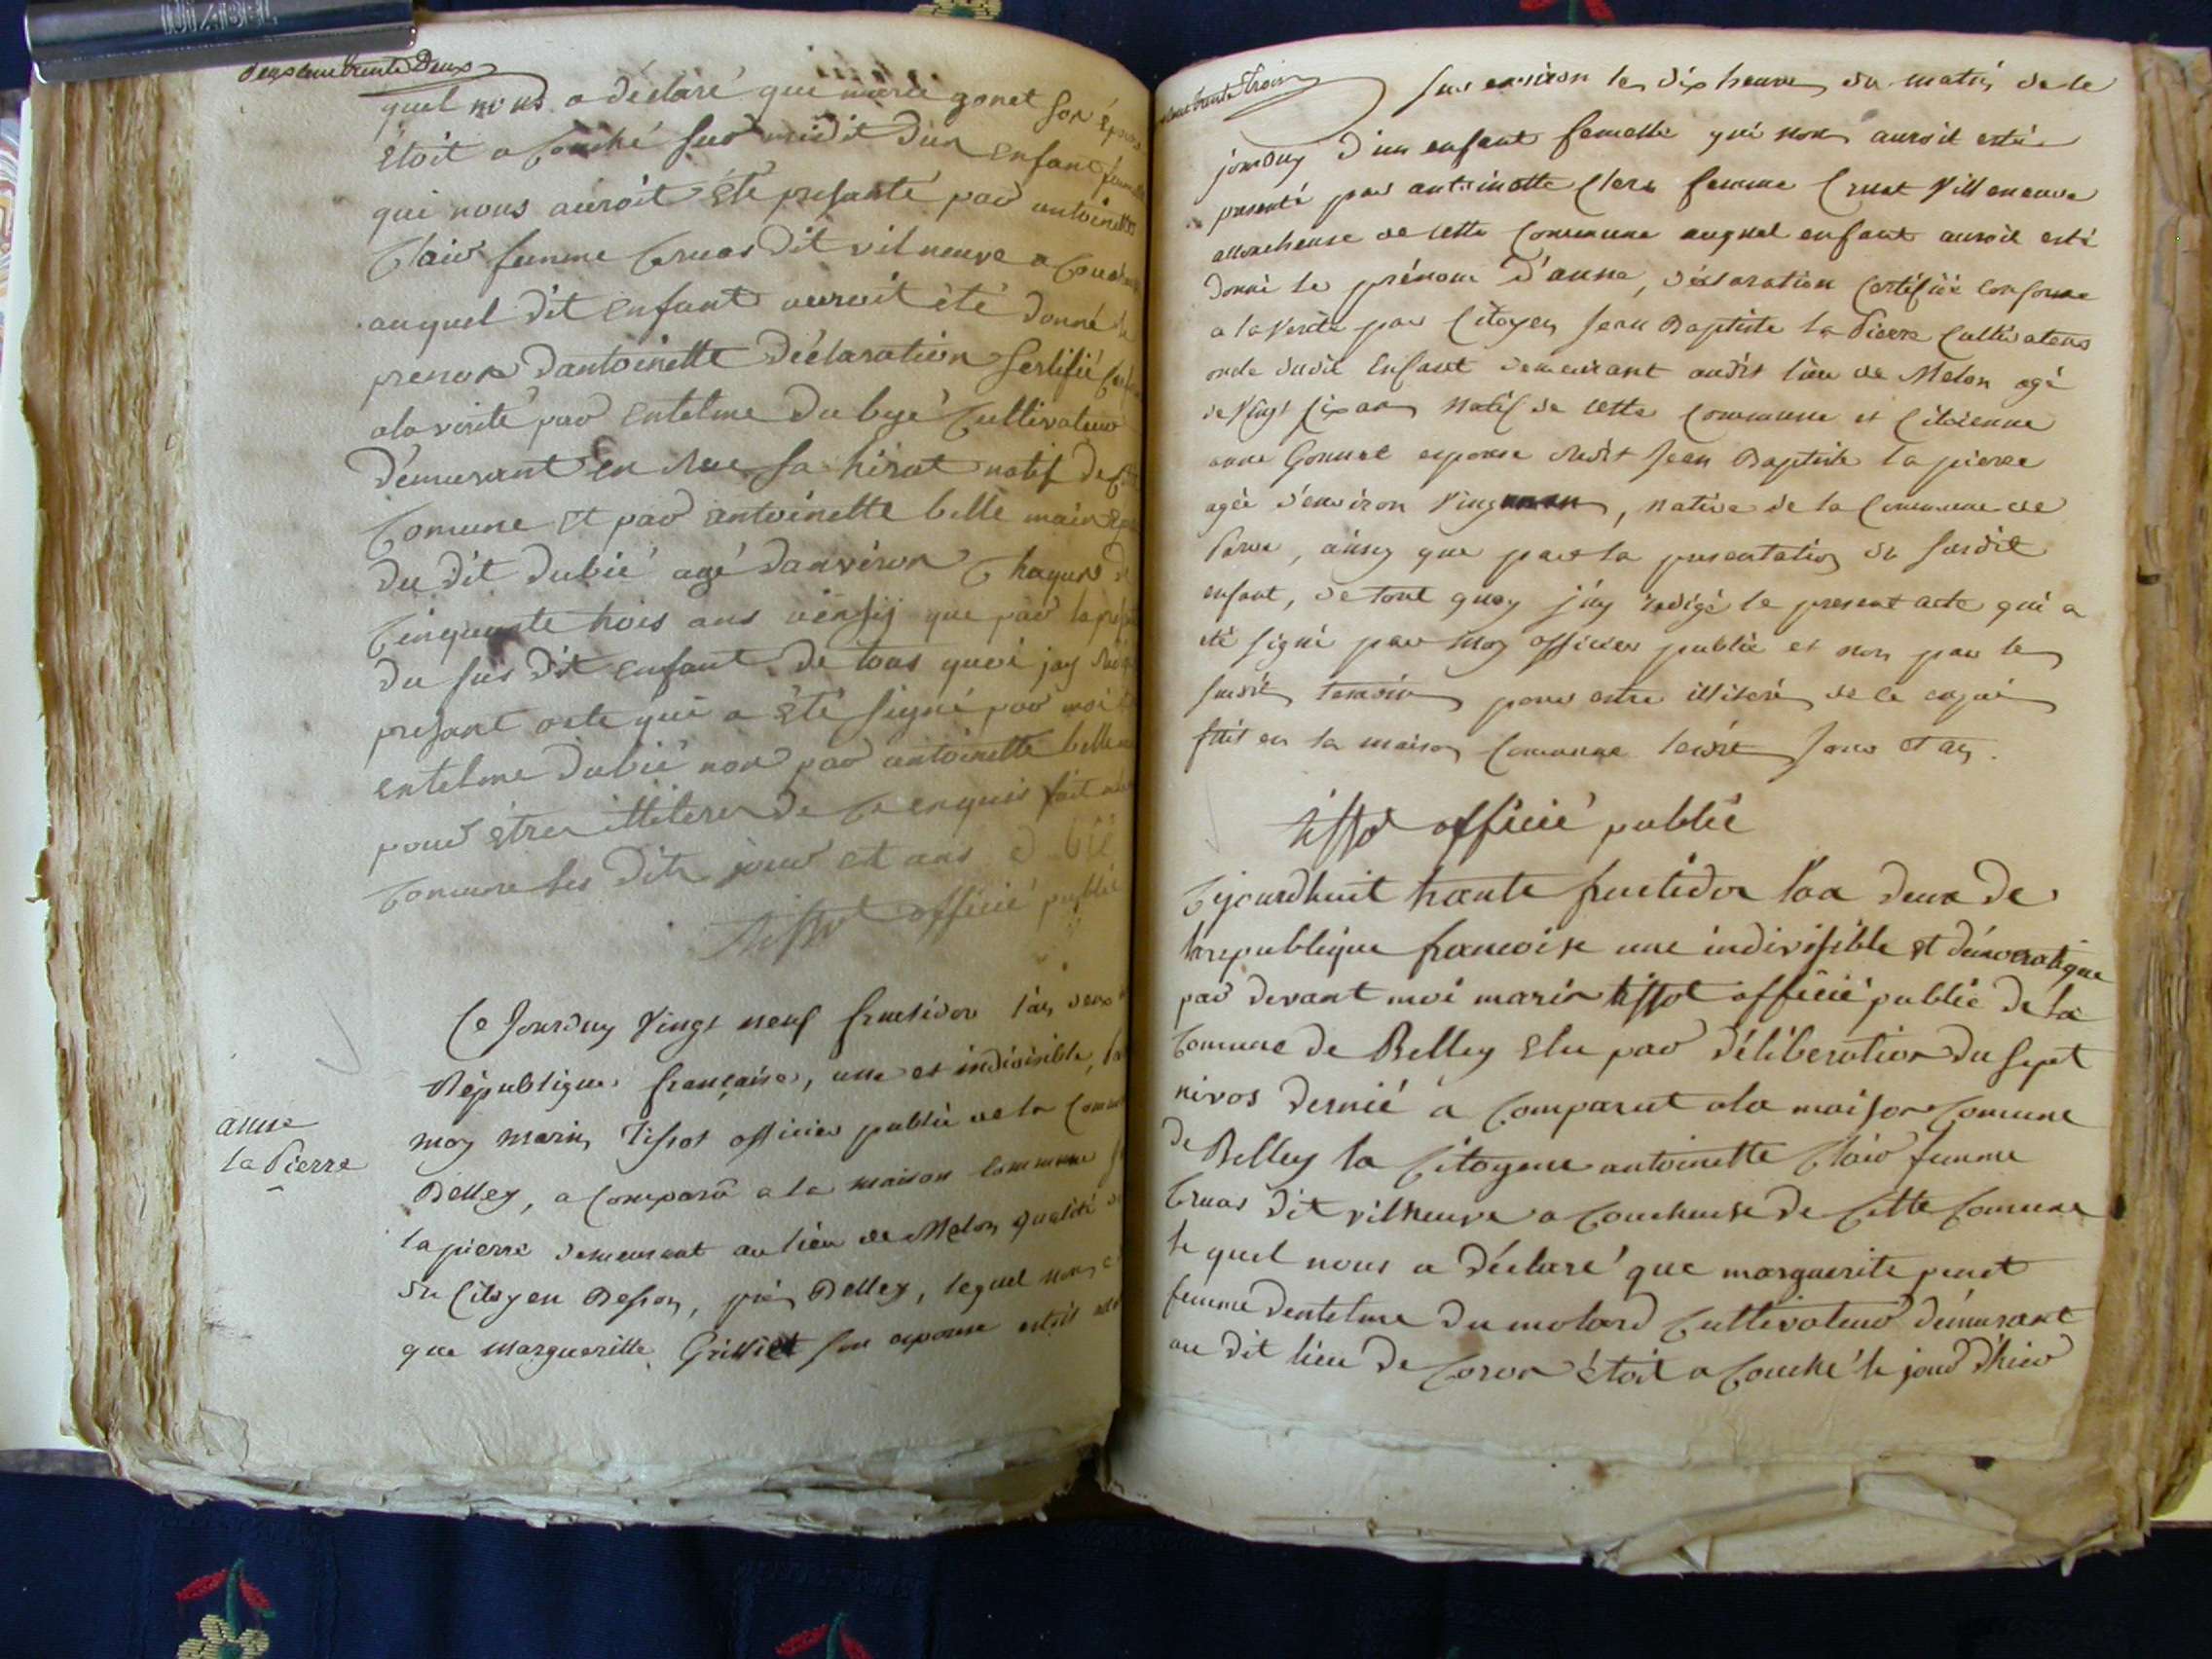 deux cent trente Deux
quel nous a déclaré que marie gonet son épouse
étoit a Couché sur midit d'un enfant femelle
qui nous auroit été presanté par antoinette
Claiv femme Cruas dit vilneuve a Couch
auquel dit enfant auroit été donné le
prenom dantoinette Déclaration Sertifié
a la vérité par entelme Du byé Cultivateur
démurant en Rue sa hirat natif de
Comune et par antoinette belle main
du dit Dubié agé danviron Chaqun de
Cinquante trois ans ainsy que par la
du sus dit enfant de tous quoi jay
presant acte qui a été signé par moi
entelme Dubié non par antoinette belle
pour être illiteré de Ce enquis fait
Comune les dits jour et ans
tissot officié public
Ce Jourduy Vingt neuf fructidor l'an deux
République française, une et indivisible,
moy marin Tissot officier public de la Comm
Belley, a Comparû a la maison Commune
lapierre demeurant au lieu de Melon
du Citoyen Besson, près Belley, lequel nous
que margueritte son epouse estoit
anne
la Pierre
trente trois
sur environ les dix heures du matin de le
jourduy d'un enfant femelle qui nous auroit esté
presenté par antoinette Clerc femme Cruat Villeneuve
accoucheuse de cette Commune auquel enfant auroit esté
donné le prénom d'anne, déclaration certifiée conforme
a la Verité par Citoyen Jean Baptiste la Pierre Cultivateur
oncle dudit Enfant demeurant audit lieu de Melon agé
de Vingt six ans natif de cette Commune et Citoienne
anne Gonnet epouse dudit Jean Baptiste la pierre
agée d'environ Vingt , native de la Commune de
Parve, ainsy que par la presentation du susdit
enfant, de tout quoy j'ay redigé le present acte qui a
été signé par moy officier public et non par les
susdits temoins pour estre illiterés de ce enquis
fait en la maison Commune lesdit Jour et an.
tissot officié public
Cejourdhuit trante fructidor l'an deux de
la republique francoise une indivisible et démocratique
par devant moi marin tissot officié public de la
Comune de Belley Elu par déliberation du sept
nivos dernié a Comparut a la maison Comune
de Belley la Citoyene antoinette Claiv femme
Cruas dit vilneuve a Coucheuse de Cette Comune
le quel nous a déclaré que marguerite
femme dentelme Dumolard Cultivateur démurant
au dit lieu de Coron étoit a Couché le jour d'hier